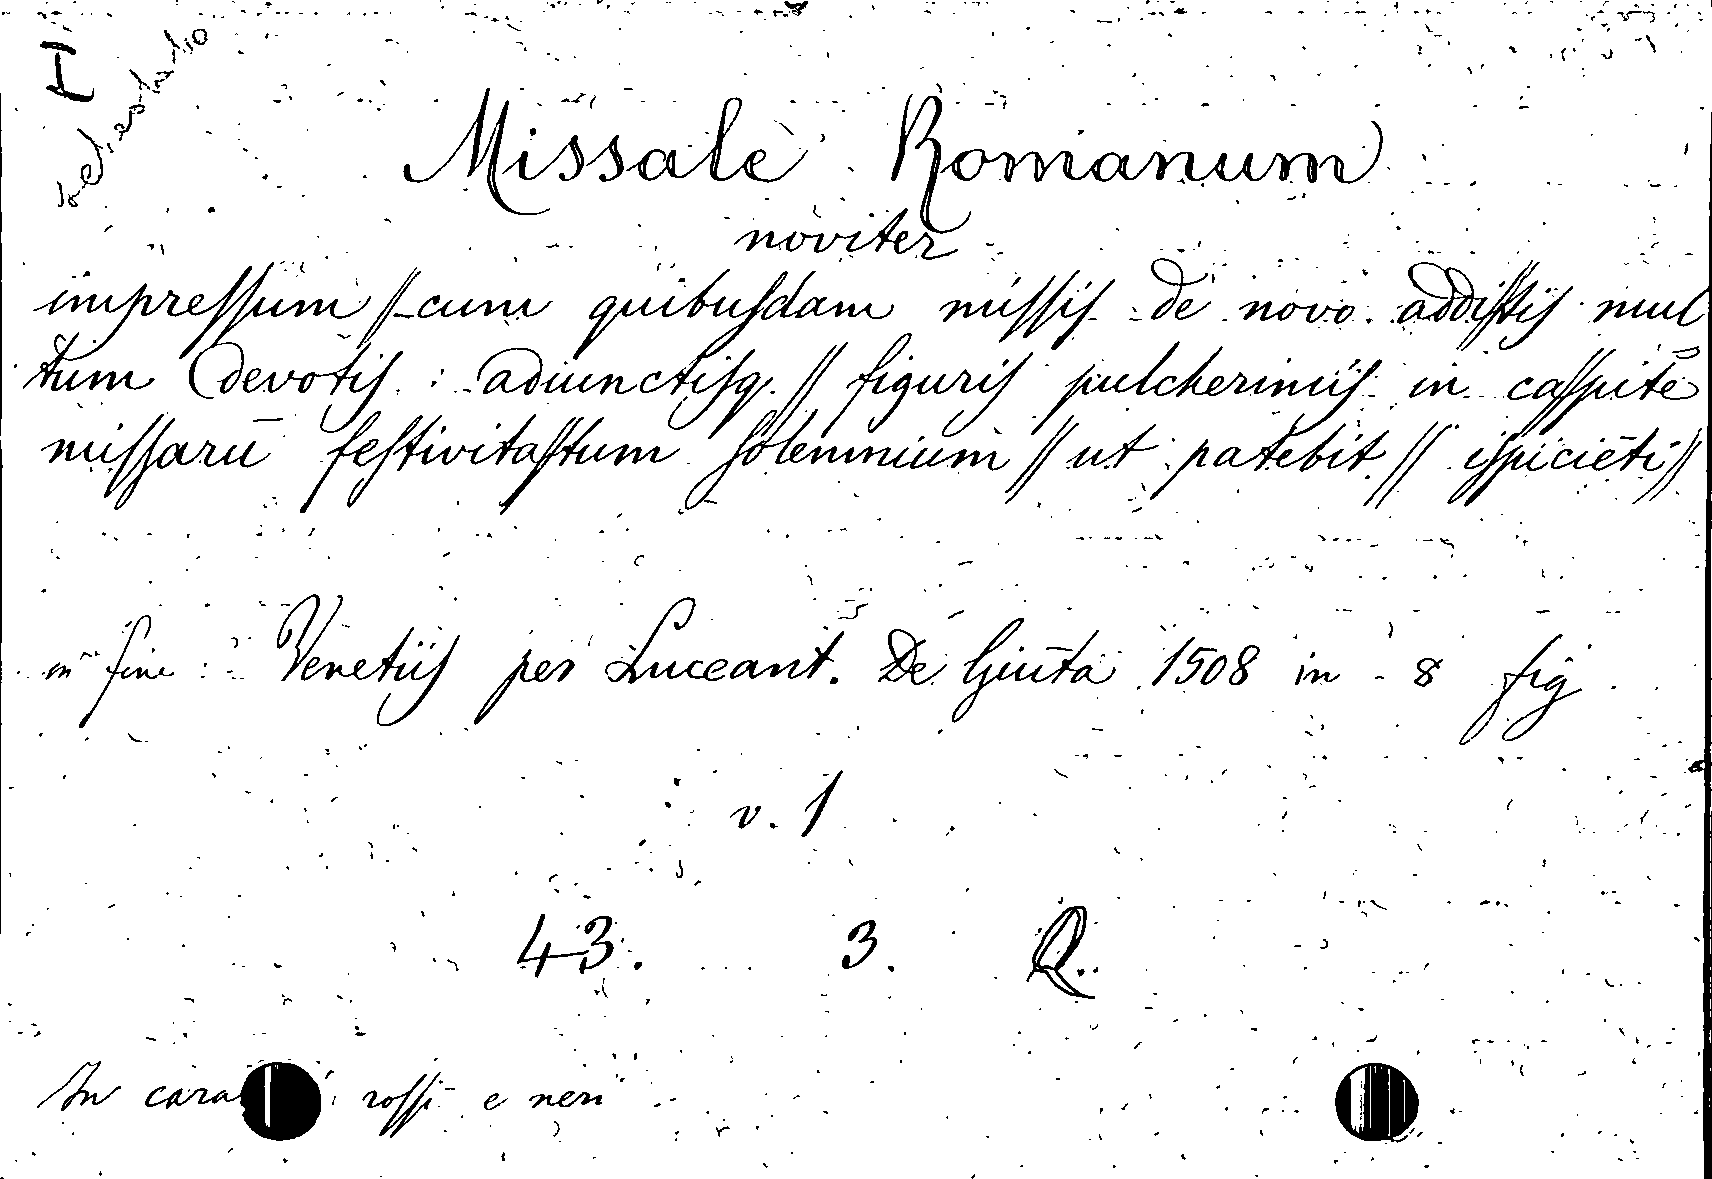 H
schedato
Missale Romanum
noviter
impressum // cum quibusdam missis de novo addi//tis mul
tum devotis : adiunctisq. // figuris pulcherimis in ca//pite
missarū festivita//tum solemnium // ut patebit // īspiciēti //
in fine : Venetiis per Luceant. De Giūta 1508 in 8 fig
v. 1
43. 3. Q.
In cara i rossi e neri